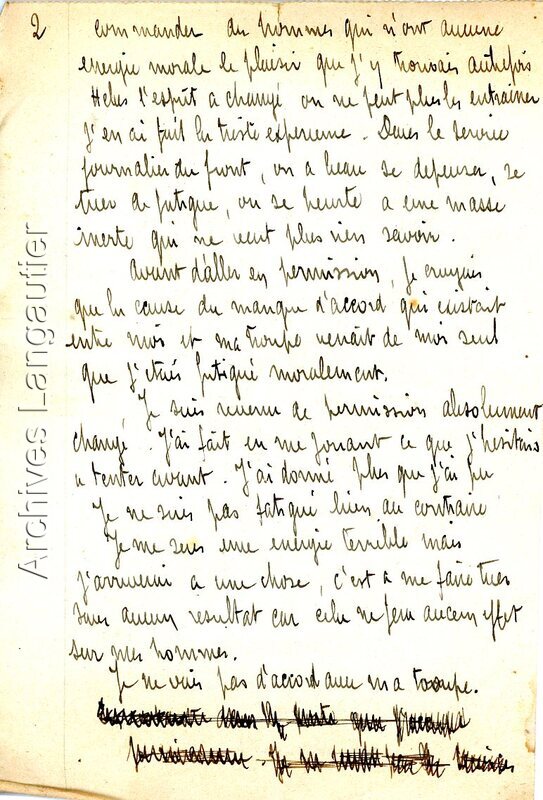 2
commander des hommes qui n'ont aucune
energie morale le plaisir que j'y trouvais autrefois
Helas l'esprit a changé on ne peut plus les entraîner
j'en ai fait la triste experience. Dans le service
journalier du front, on a beau se depenser, se
tuer de fatigue, on se heurte a une masse
inerte qui ne veut plus rien savoir.
Avant d'aller en permission, je croyais
que la cause du manque d'accord qui existait
entre moi et ma troupe venait de moi seul
que j'étais fatigué moralement.
Je suis revenu de permission absolument
changé. J'ai fait en me jouant ce que j'hesitais
a tenter avant. J'ai donné plus que j'ai pu
Je ne suis pas fatigué bien au contraire
Je me sens une energie terrible mais
j'arriverai a une chose, c'est a me faire tuer
sans aucun resultat car cela ne fera aucun effet
sur mes hommes.
Je ne vais pas d'accord avec ma troupe.
Archives Langautier